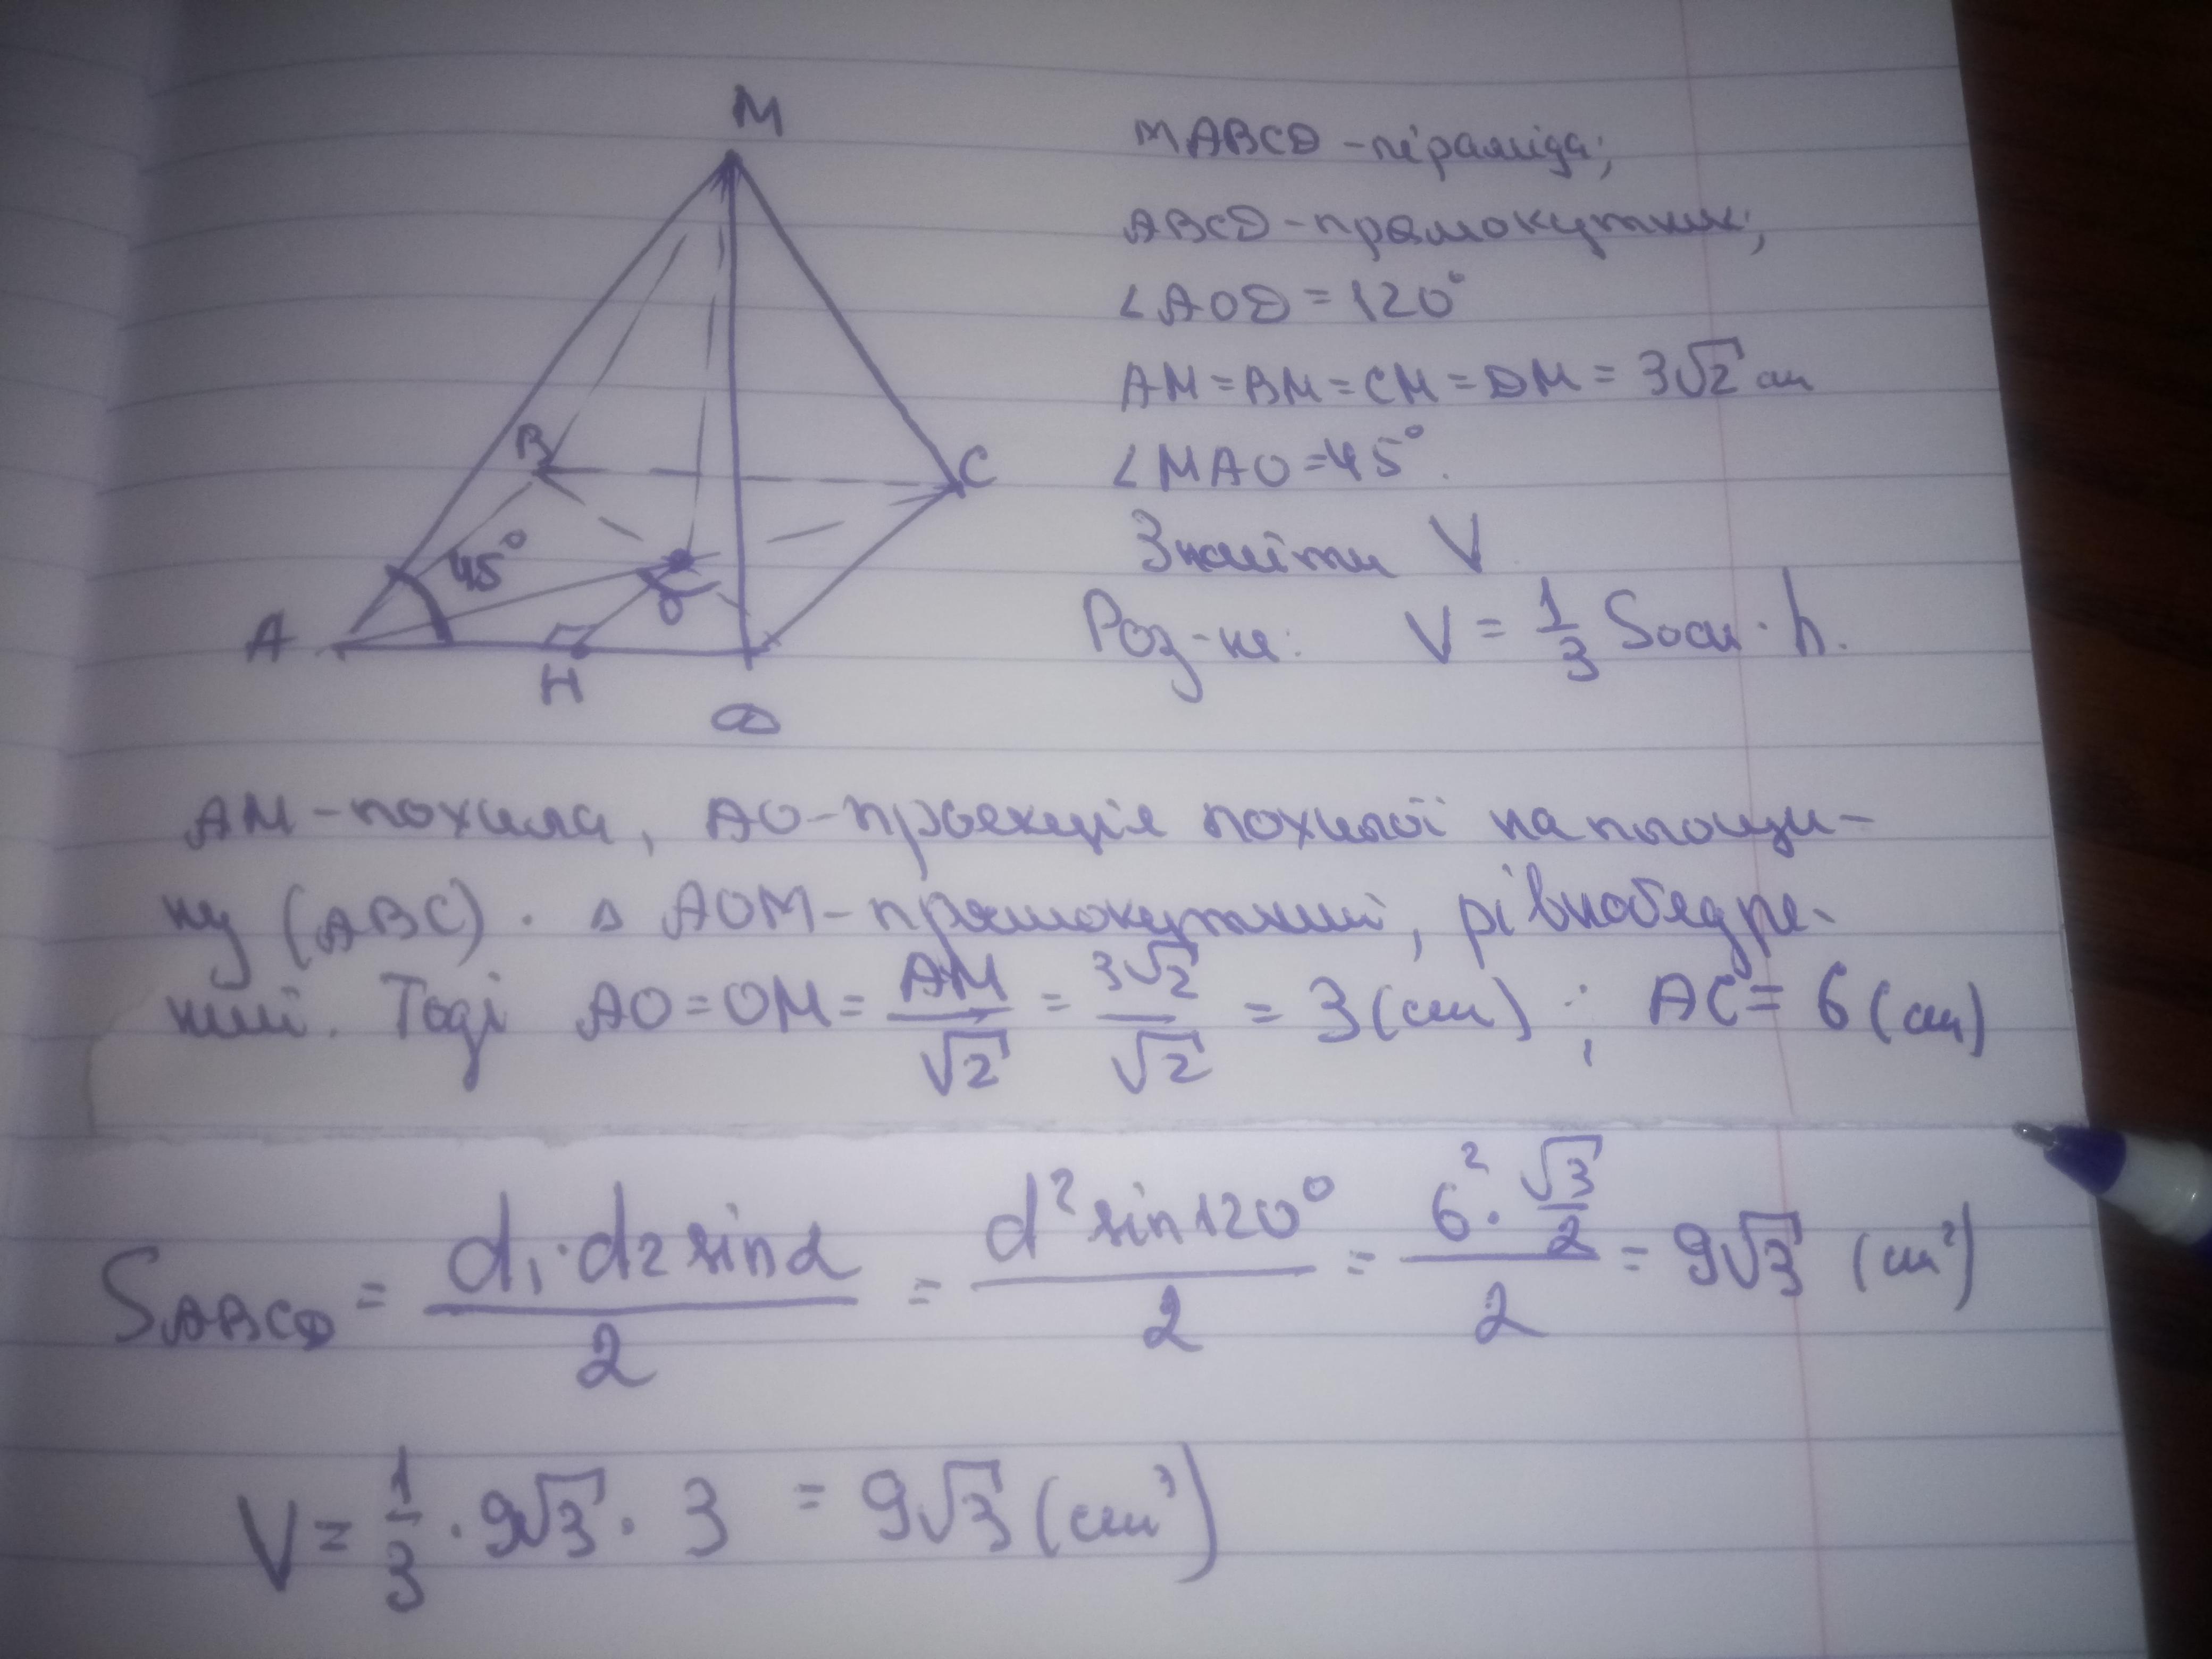 M
B
C
45°
A
O
H
D
MABCD - піраміда;
ABCD - прямокутник;
∠AOD = 120°
AM = BM = CM = DM = 3√2 см
∠MAO = 45°.
Знайти V
Роз-ня: V = 1/3 Sосн · h.
AM - похила, AO - проекція похилої на площи-
ну (ABC). △ AOM - прямокутний, рівнобедре-
ний. Тоді AO = OM = AM/√2 = 3√2/√2 = 3 (см); AC = 6 (см)
S ABCD = d₁ · d₂ sin α / 2 = d² sin 120° / 2 = 6² · √3/2 / 2 = 9√3 (см²)
V = 1/3 · 9√3 · 3 = 9√3 (см³)